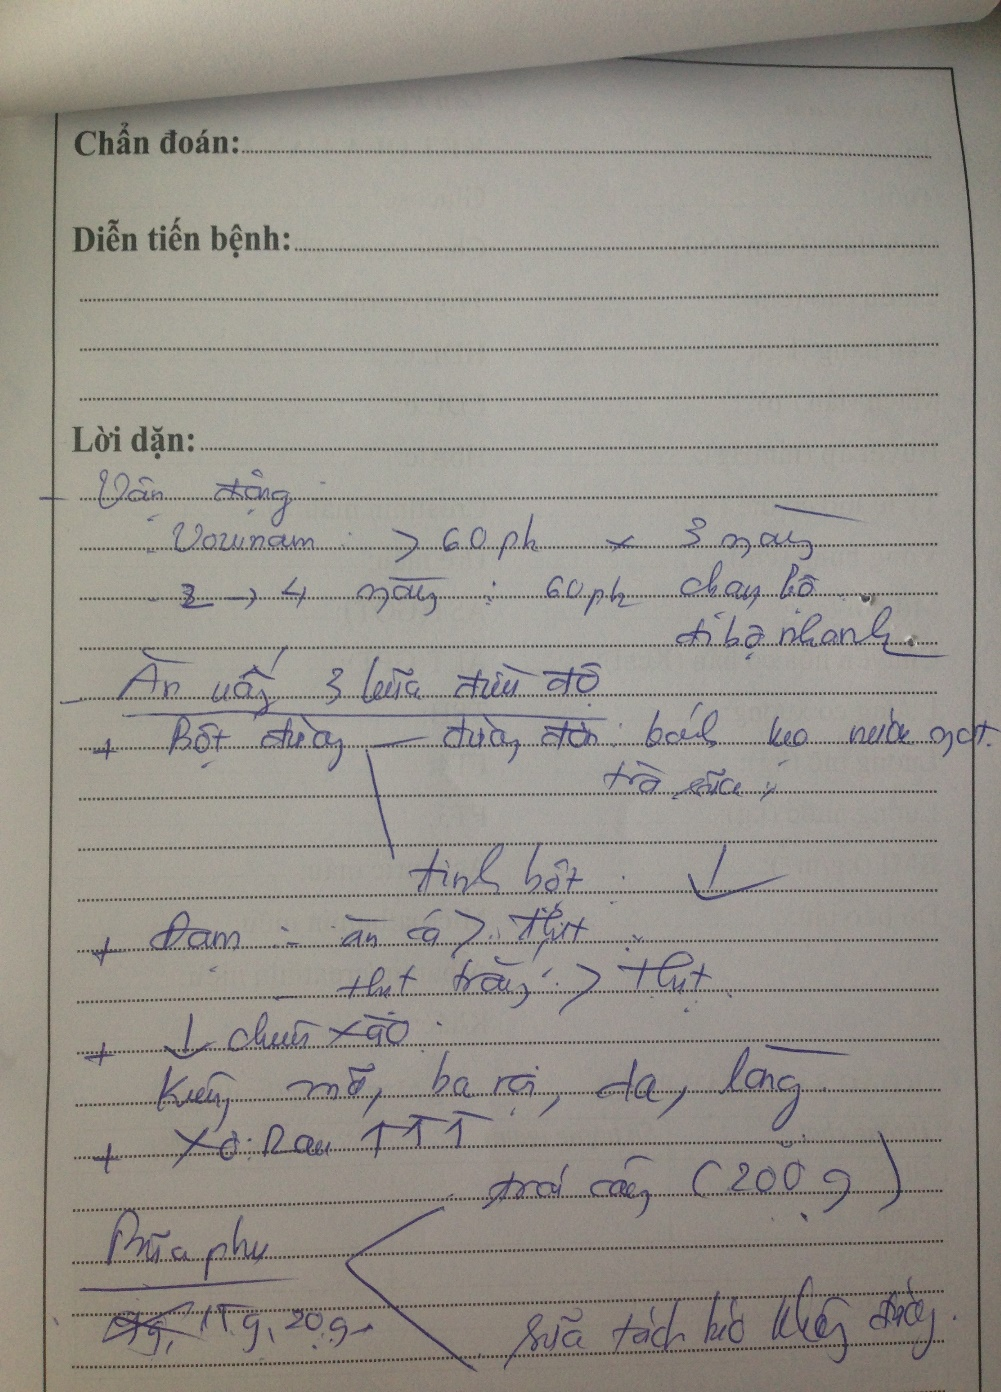 Chẩn đoán:
Diễn tiến bệnh:
Lời dặn:
- Vận động
- Vovinam : > 60 ph × 3 ngày
- 2 → 4 ngày : 60 ph chạy bộ
đi bộ nhanh.
- Ăn uống 3 bữa điều độ
+ Bột đường — đường đơn : bánh kẹo nước ngọt.
trà sữa
tinh bột ↓
+ Đạm : - ăn cá > thịt
- thịt trắng > thịt
+ ↓ chiên xào
Kiêng mỡ, ba rọi, da, lòng
+ Xơ : Rau ↑↑↑
trái cây (200 g)
Bữa phụ
15g, 20g
sữa tách béo không đường.